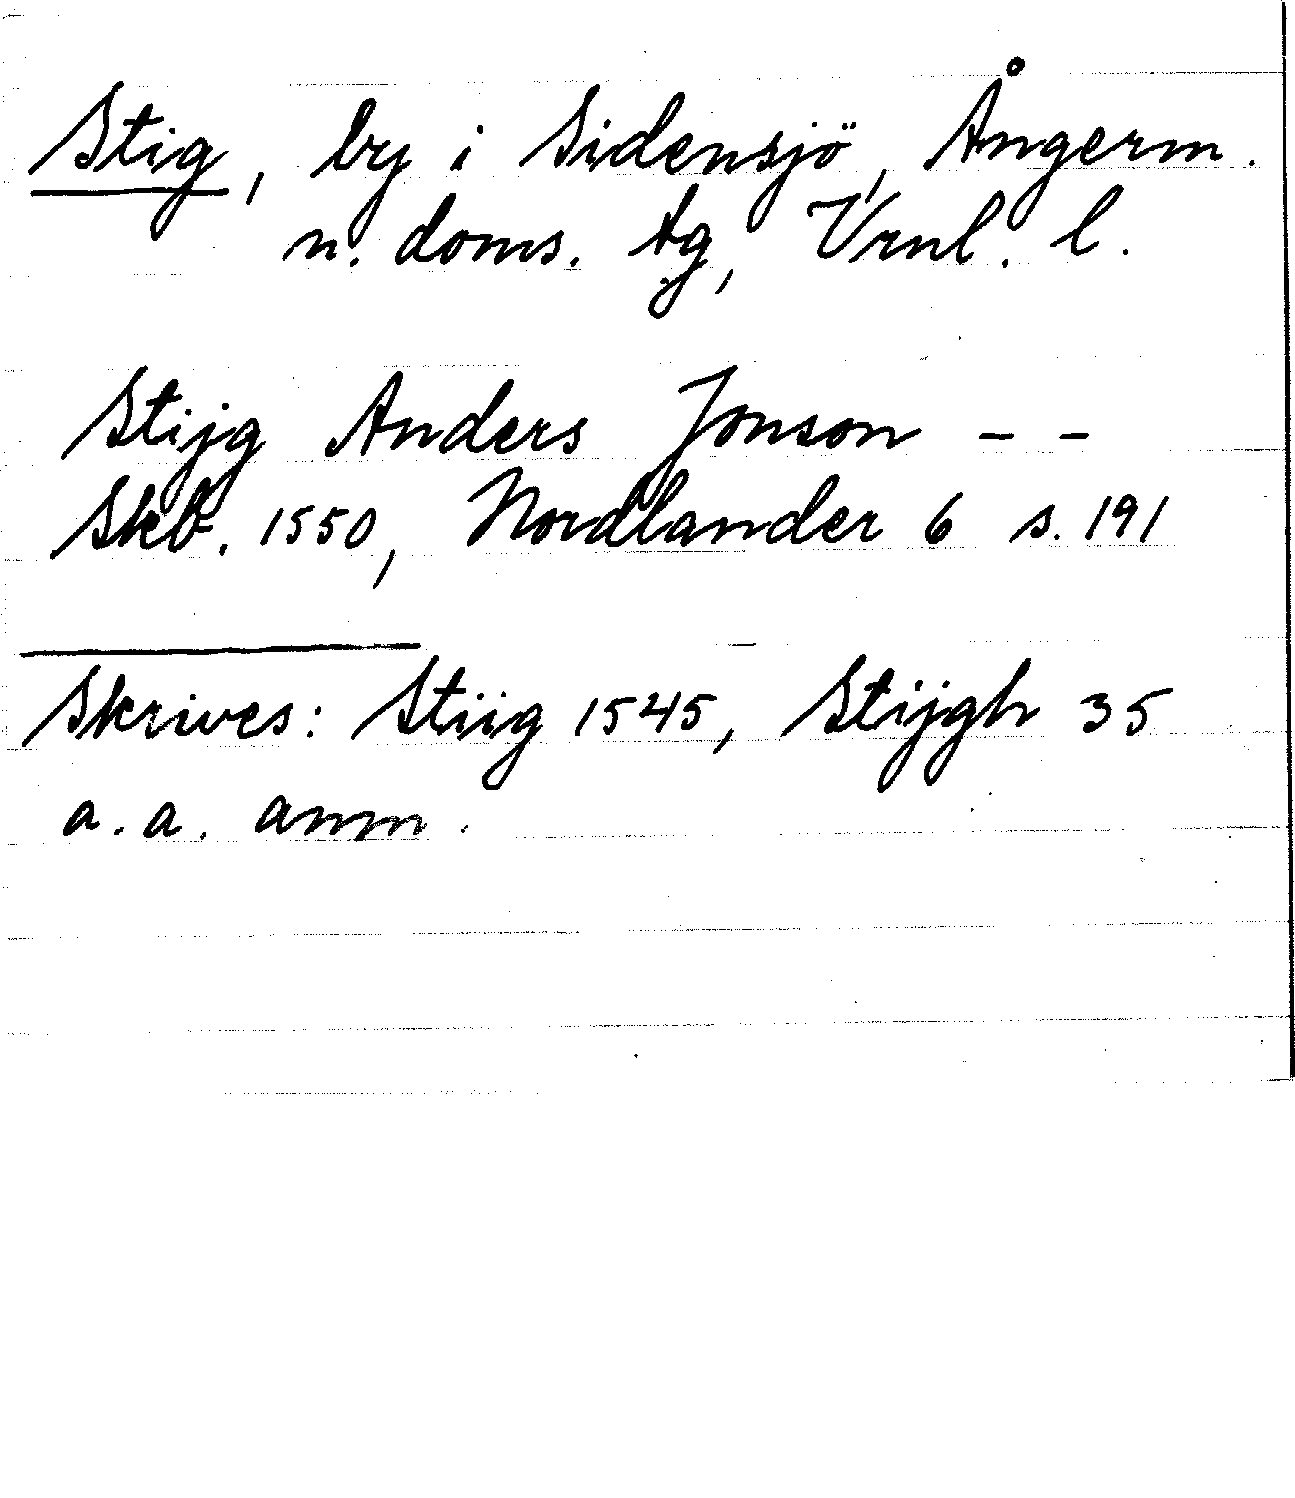 Stig, by i Sidensjö, Ångerm.
n. doms. tg, Vrnl. l.
Stijg Anders Jonson – –
Skb. 1550, Nordlander 6 s. 191
Skrives: Stiig 1545, Stijgh 35
a. a. anm.